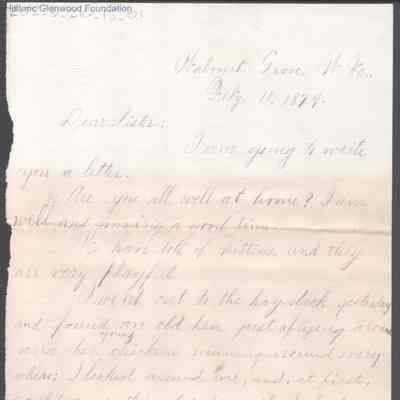 Historic Glenwood Foundation
Walnut Grove, W. Va.,
July 10, 1879.
Dear Sister:
I am going to write
you a letter.
Are you all well at home? I am
well and having a good time.
We have lots of kittens and they
are very playful.
I went out to the hay stack yesterday
and found an old hen just aflying around
and her young chickens running around every
where; I looked around me, and, at first,